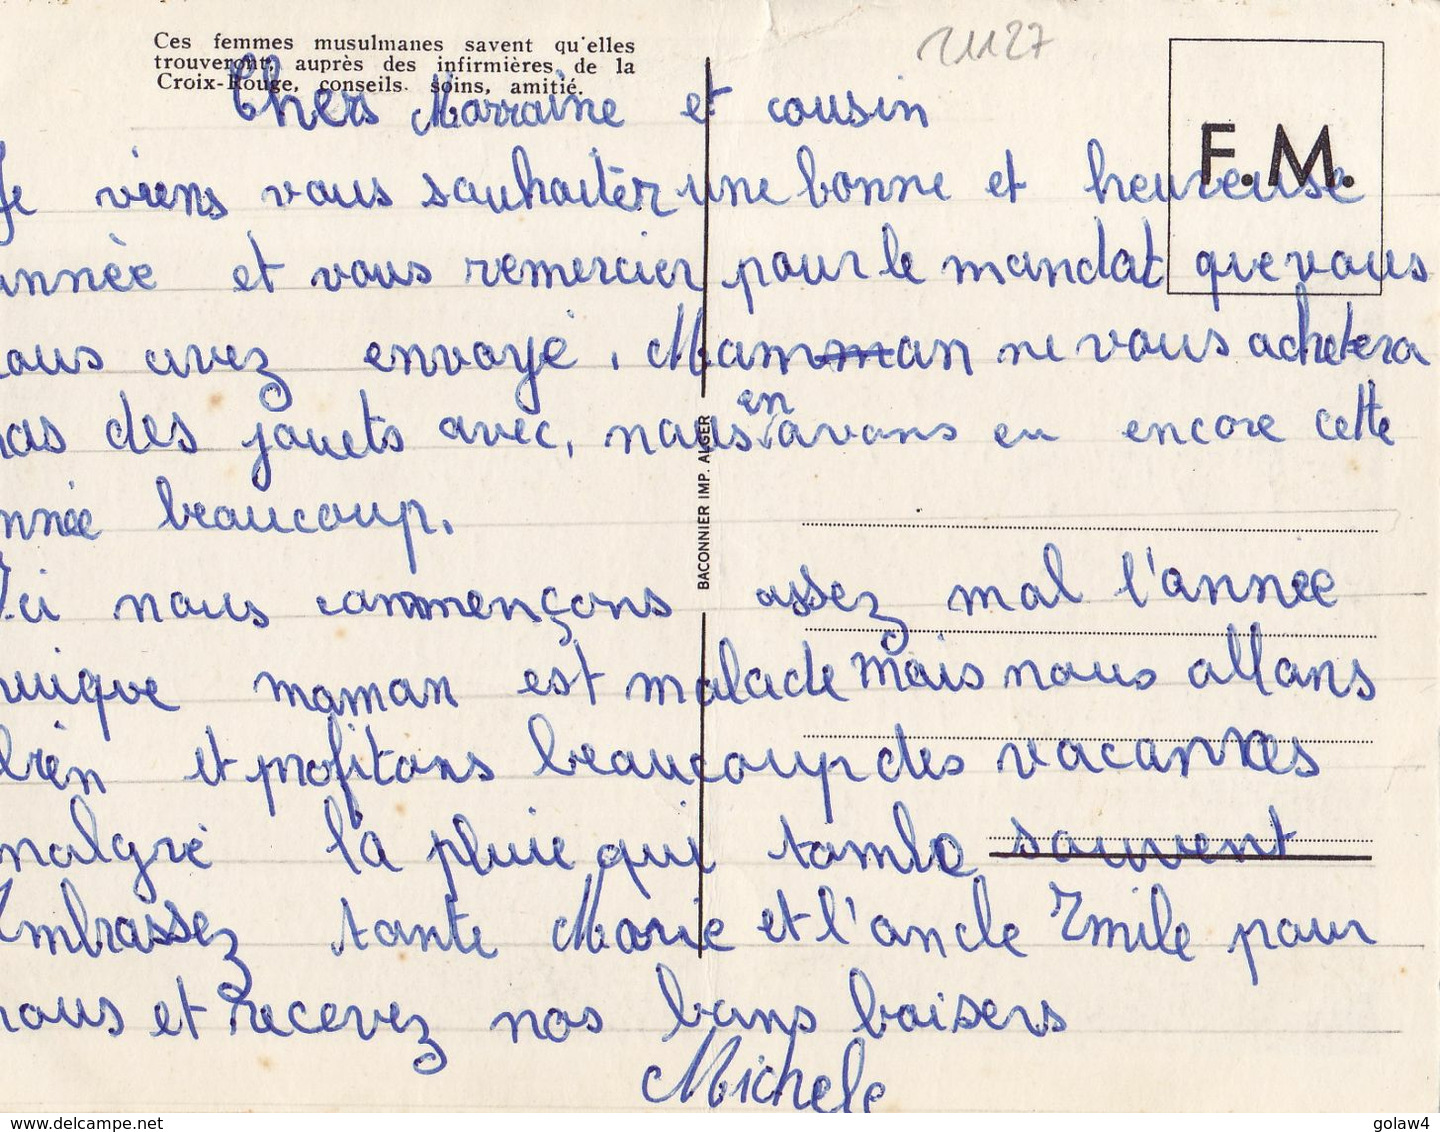 Ces femmes musulmanes savent qu'elles
trouveront, auprès des infirmières de la
Croix-Rouge, conseils. soins, amitié.
21127
F.M.
Chers Marraine et cousin
Je viens vous souhaiter une bonne et heureuse
année et vous remercier pour le mandat que vous
nous avez envoyé. Mamman ne vous achetera
pas des jouets avec, nous en avons eu encore cette
année beaucoup.
Ici nous commençons assez mal l'année
puique maman est malade mais nous allons
bien et profitons beaucoup des vacances
malgré la pluie qui tombe souvent
Embrassez tante Marie et l'oncle Emile pour
nous et recevez nos bons baisers
Michele
BACONNIER IMP. ALGER
www.delcampe.net
golaw4